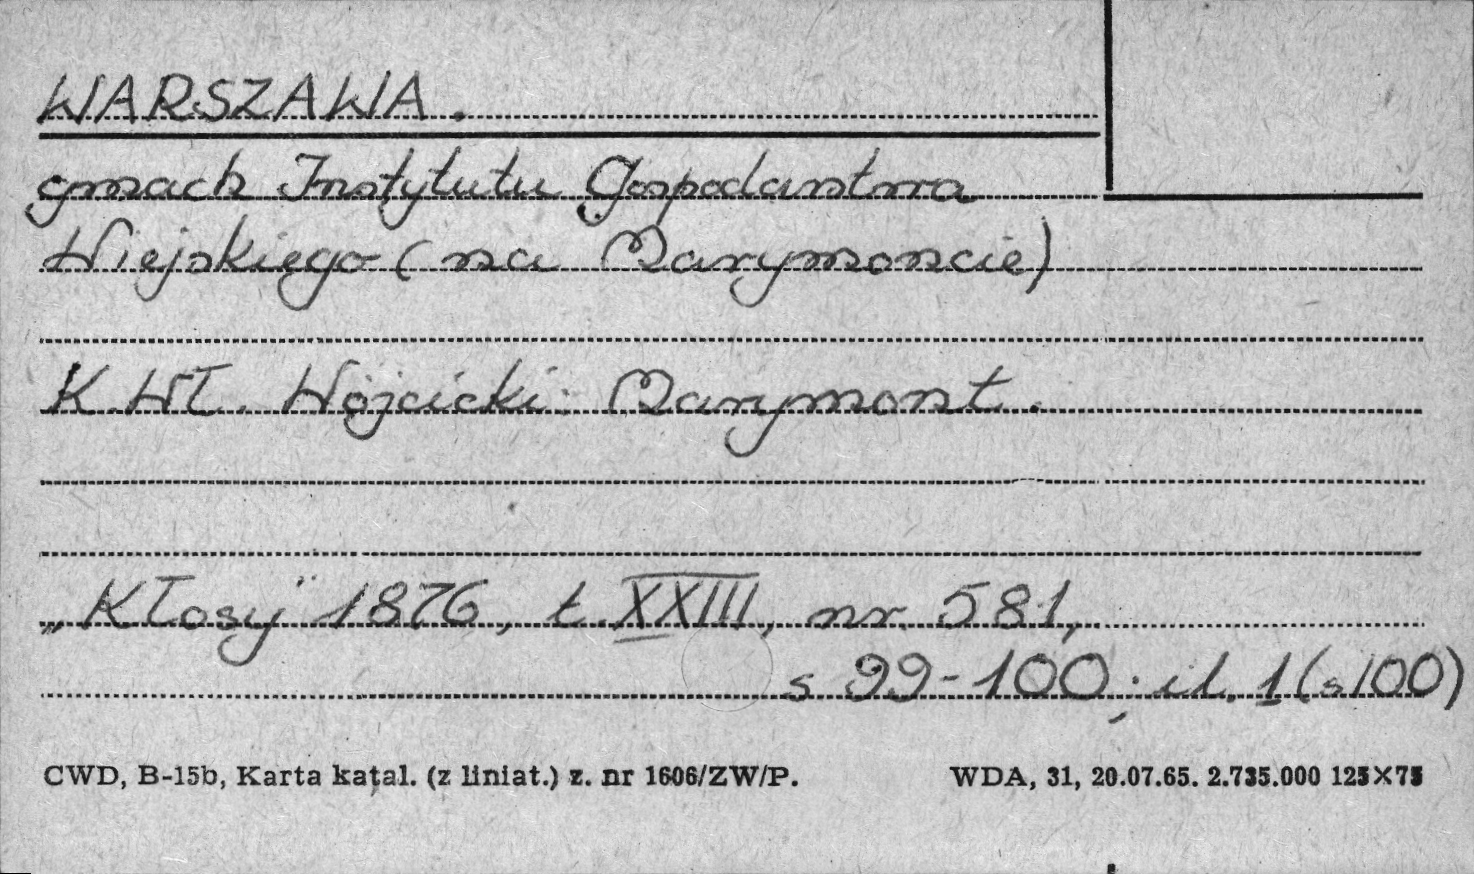 WARSZAWA.
gmach Instytutu Gospodarstwa
Wiejskiego (na Marymoncie)
K. Wł. Wójcicki: Marymont.
„Kłosy" 1876, t. XXIII, nr. 581,
s 99-100; il. 1 (s 100)
CWD, B-15b, Karta katal. (z liniat.) z. nr 1606/ZW/P. WDA, 31, 20.07.65. 2.735.000 125×75